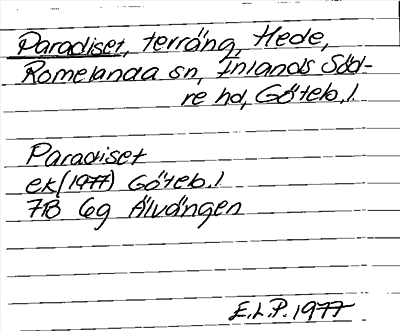 Paradiset, terräng, Hede,
Romelanda sn, Inlands Söd-
re hd, Göteb. l.
Paradiset
ek (1977) Göteb. l
7B 6g Älvängen
E.L.P. 1977